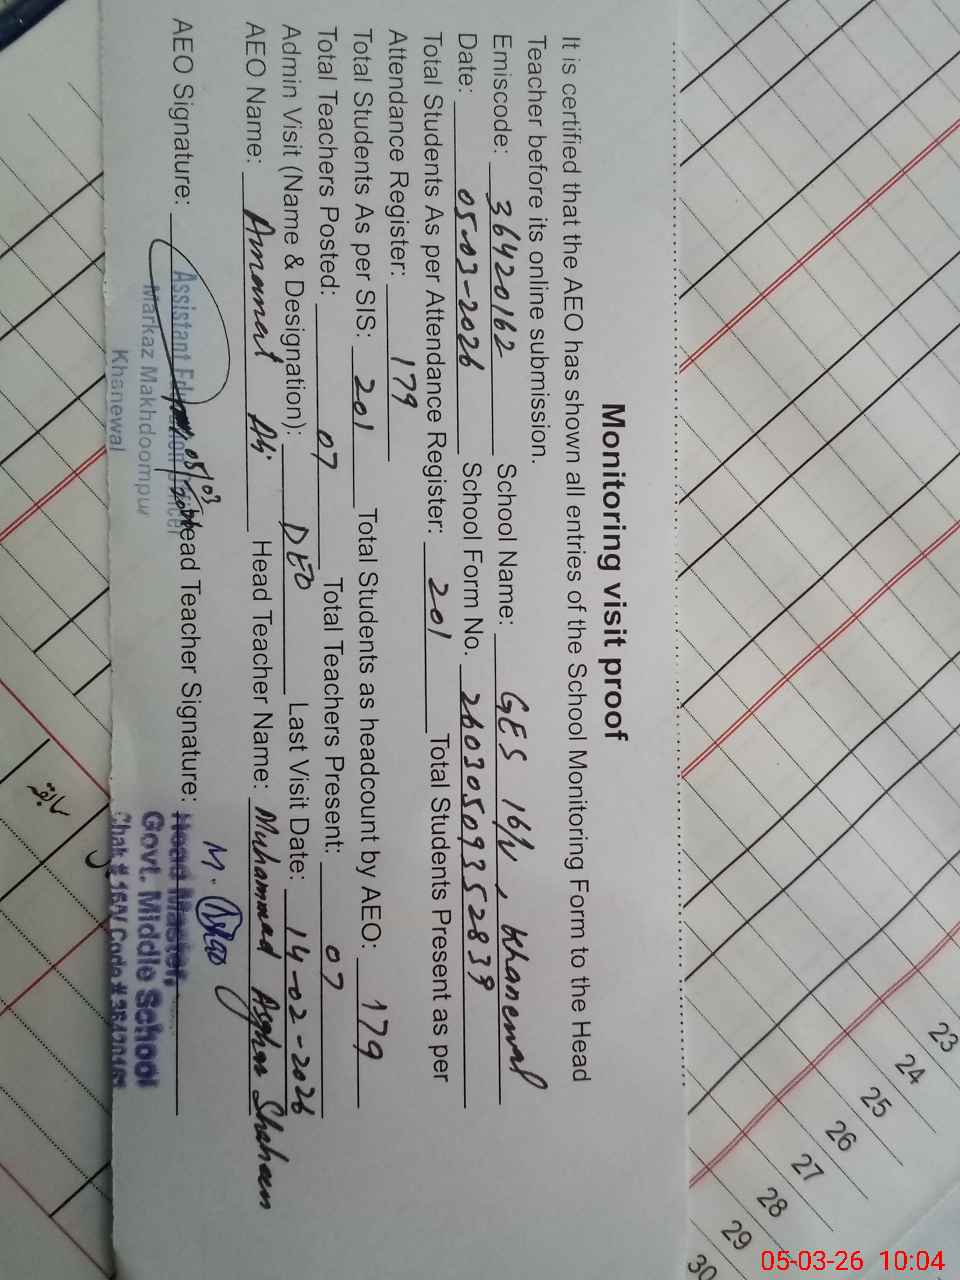 Monitoring visit proof
It is certified that the AEO has shown all entries of the School Monitoring Form to the Head
Teacher before its online submission.
Emiscode: 36420162 School Name: GES 16/V, Khanewal
Date: 05-03-2026 School Form No. 2603050935 2839
Total Students As per Attendance Register: 201 Total Students Present as per
Attendance Register: 179
Total Students As per SIS: 201 Total Students as headcount by AEO: 179
Total Teachers Posted: 07 Total Teachers Present: 07
Admin Visit (Name & Designation): DEO Last Visit Date: 14-02-2026
AEO Name: Amanat Ali Head Teacher Name: Muhammad Asghar Shaheen
AEO Signature: Head Teacher Signature:
05/03
Assistant Education Officer
Markaz Makhdoompur
Khanewal
Head Master,
Govt. Middle School
سابقہ
23
24
25
26
27
28
29
30
05-03-26 10:04